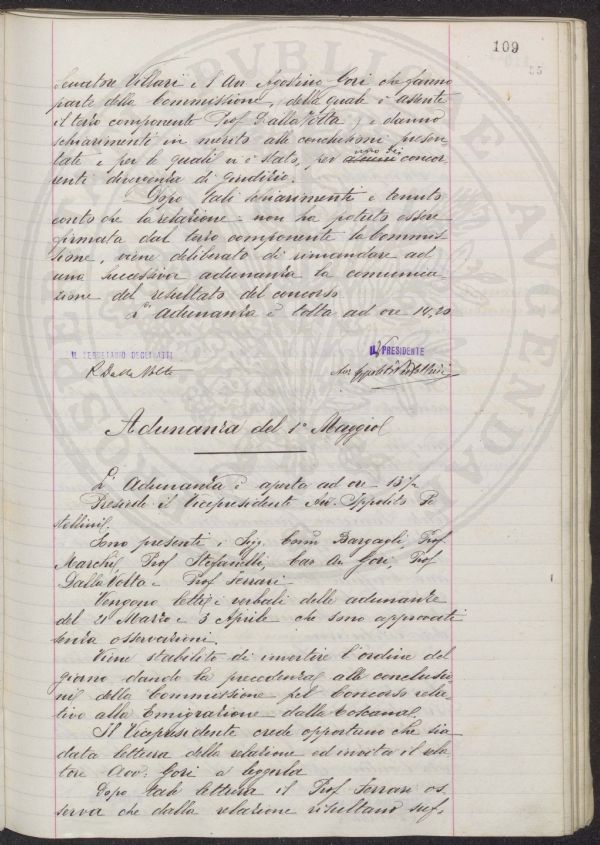 109
55
Senatore Villari e l'Avv. Agostino Gori che fanno
parte della Commissione, della quale è assente
il terzo componente Prof. Dalla Volta, e danno
schiarimenti in merito alle conclusioni presen
tate e per le quali vi è stato, per uno dei concor
renti divergenza di giudizio.
Dopo tali schiarimenti e tenuto
conto che la relazione non ha potuto essere
firmata dal terzo componente la Commis
sione, viene deliberato di rimandare ad
una successiva adunanza la comunica
zione del resultato del concorso
L'adunanza è tolta ad ore 14,20
IL SEGRETARIO DEGLI ATTI
IL PRESIDENTE
R. Dalla Volta
Adunanza del 1° Maggio
L'adunanza è aperta ad ore 13½
Presiede il Vicepresidente Avv. Ippolito Pe
stellini.
Sono presenti i Sigg. Comm Bargagli, Prof
Marchi, Prof Stefanelli, Cav Avv. Gori, Prof
Dalla Volta e Prof Ferrari
Vengono letti i verbali delle adunanze
del 21 Marzo e 3 Aprile che sono approvati
senza osservazioni.
Viene stabilito di invertire l'ordine del
giorno dando la precedenza alle conclusio
ni della Commissione pel Concorso rela
tivo alla Emigrazione dalla Toscana.
Il Vicepresidente crede opportuno che sia
data lettura della relazione ed invita il rela
tore Avv. Gori a leggerla
Dopo tale lettura il Prof Ferrari os
serva che dalla relazione risultano suf-